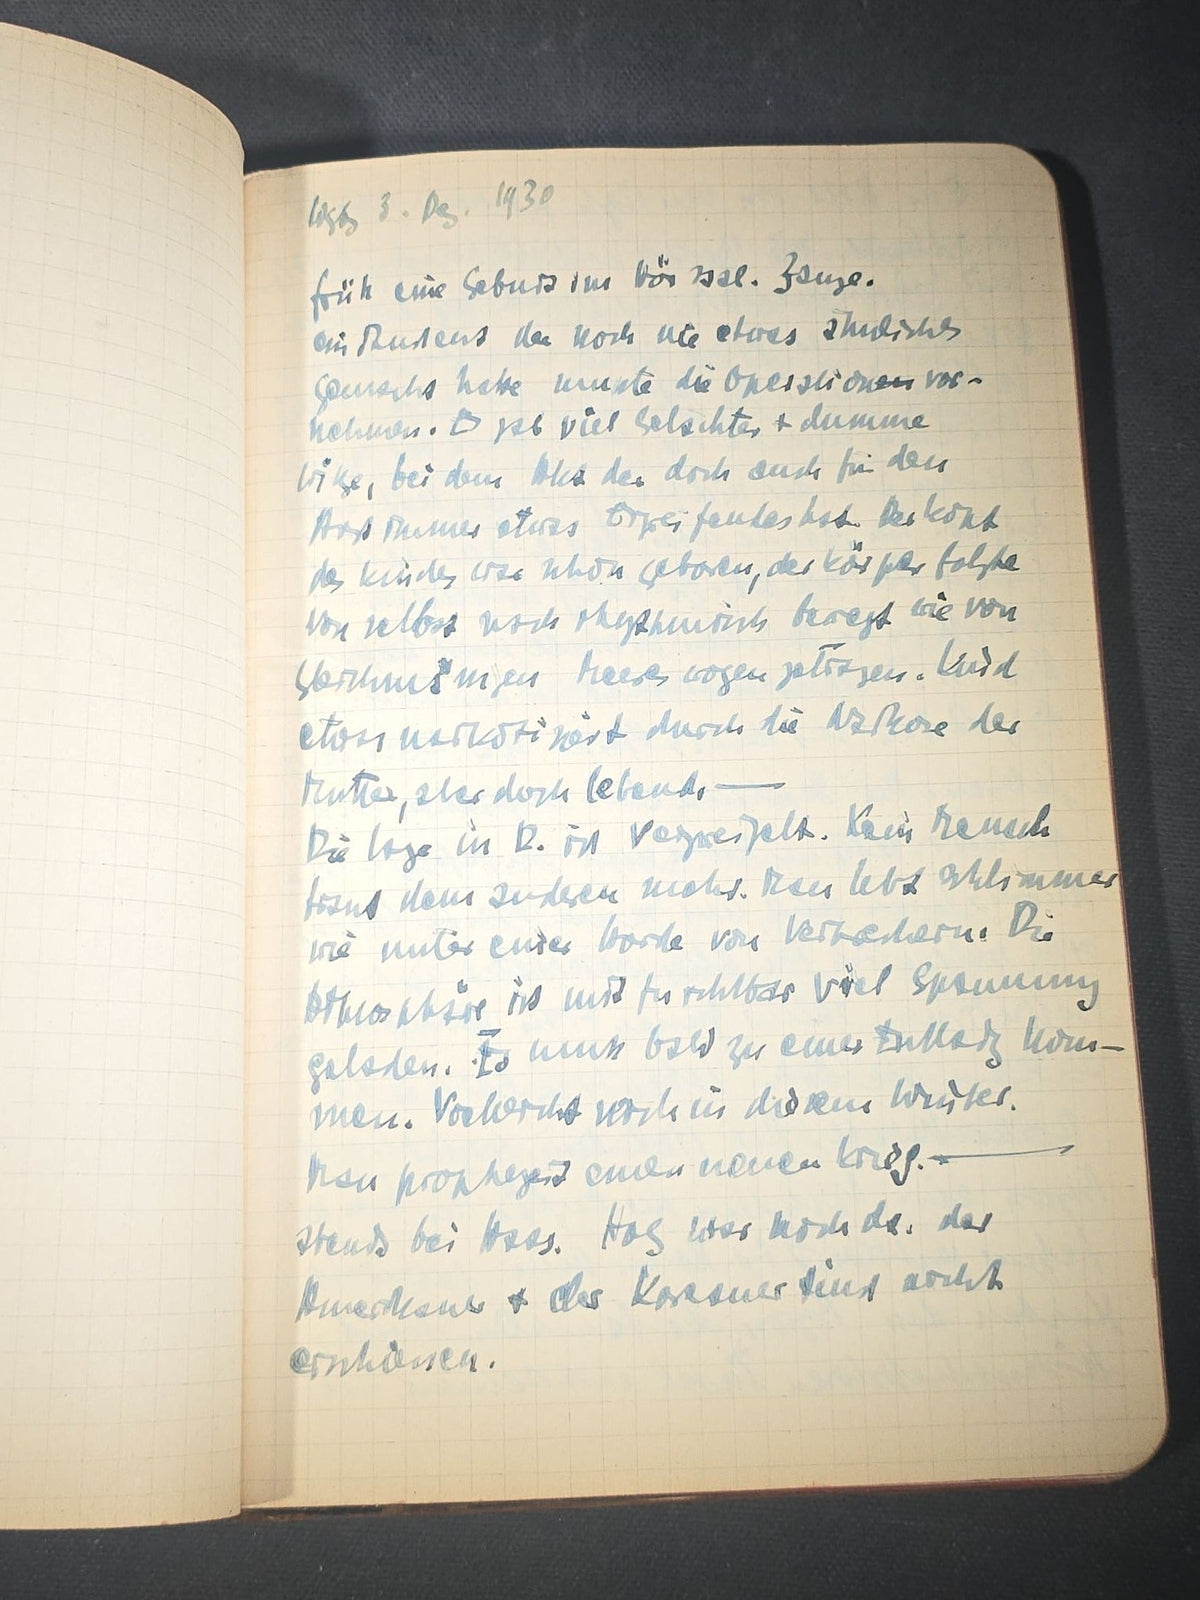 Wzbg 3. Dez. 1930
früh eine Geburt im Hörsaal. Zange.
ein Student der noch nie etwas ähnliches
gemacht hatte musste die Operationen vor-
nehmen. Es gab viel Gelächter + dumme
Witze, bei dem Akt der doch auch für den
Arzt immer etwas Ergreifendes hat. Der Kopf
des Kindes war schon geboren, der Körper folgte
von selbst noch rhythmisch bewegt wie von
gleichmässigen Meeres wogen getragen. Kind
etwas narkotisiert durch die Narkose der
Mutter, aber doch lebend. —
Die Lage in D. ist verzweifelt. Kein Mensch
traut dem anderen mehr. Man lebt schlimmer
wie unter einer Horde von Verbrechern. Die
Atmosphäre ist mit furchtbar viel Spannung
geladen. Es muss bald zu einer Entladg kom-
men. Vielleicht noch in diesem Winter.
Man prophezeit einen neuen Krieg. —
abends bei Haas. Hag war noch da. der
Amerikaner + der Koreaner sind nicht
erschienen.